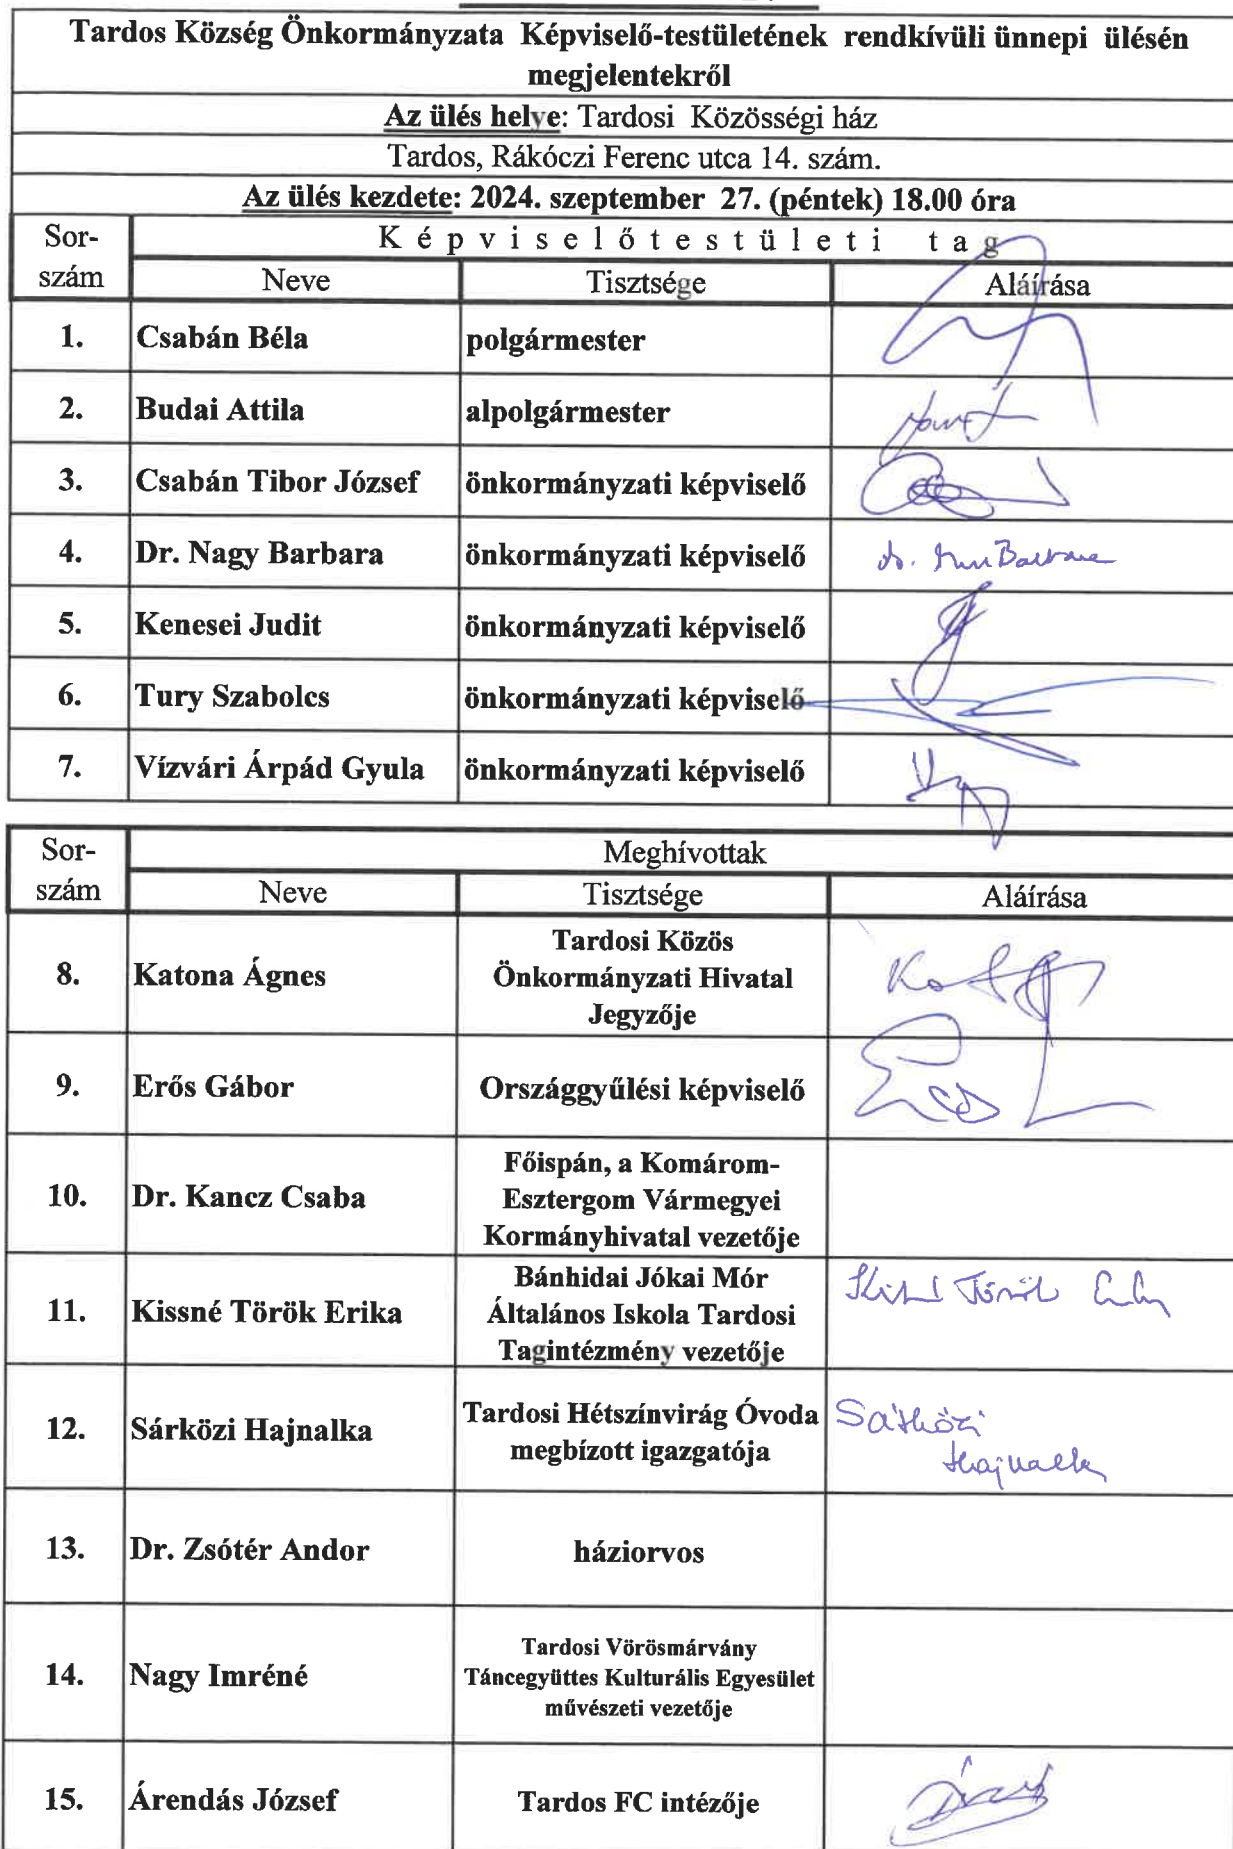 Tardos Község Önkormányzata Képviselő-testületének rendkívüli ünnepi ülésén
megjelentekről
Az ülés helye: Tardosi Közösségi ház
Tardos, Rákóczi Ferenc utca 14. szám.
Az ülés kezdete: 2024. szeptember 27. (péntek) 18.00 óra
Sor-
szám
K é p v i s e l ő t e s t ü l e t i t a g
Neve Tisztsége Aláírása
1. Csabán Béla polgármester
2. Budai Attila alpolgármester
3. Csabán Tibor József önkormányzati képviselő
4. Dr. Nagy Barbara önkormányzati képviselő
5. Kenesei Judit önkormányzati képviselő
6. Tury Szabolcs önkormányzati képviselő
7. Vízvári Árpád Gyula önkormányzati képviselő
Sor-
szám
Meghívottak
Neve Tisztsége Aláírása
8. Katona Ágnes
Tardosi Közös
Önkormányzati Hivatal
Jegyzője
9. Erős Gábor Országgyűlési képviselő
10. Dr. Kancz Csaba
Főispán, a Komárom-
Esztergom Vármegyei
Kormányhivatal vezetője
11. Kissné Török Erika
Bánhidai Jókai Mór
Általános Iskola Tardosi
Tagintézmény vezetője
12. Sárközi Hajnalka
Tardosi Hétszínvirág Óvoda
megbízott igazgatója
Sárközi
Hajnalka
13. Dr. Zsótér Andor háziorvos
14. Nagy Imréné
Tardosi Vörösmárvány
Táncegyüttes Kulturális Egyesület
művészeti vezetője
15. Árendás József Tardos FC intézője